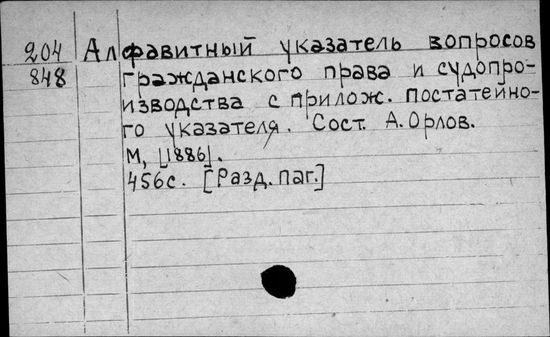 204 Алфавитный указатель вопросов
848 гражданского права и судопро-
изводства с прилож. постатейно-
го указателя. Сост. А. Орлов.
М, [1886].
456с. [Разд. паг.]